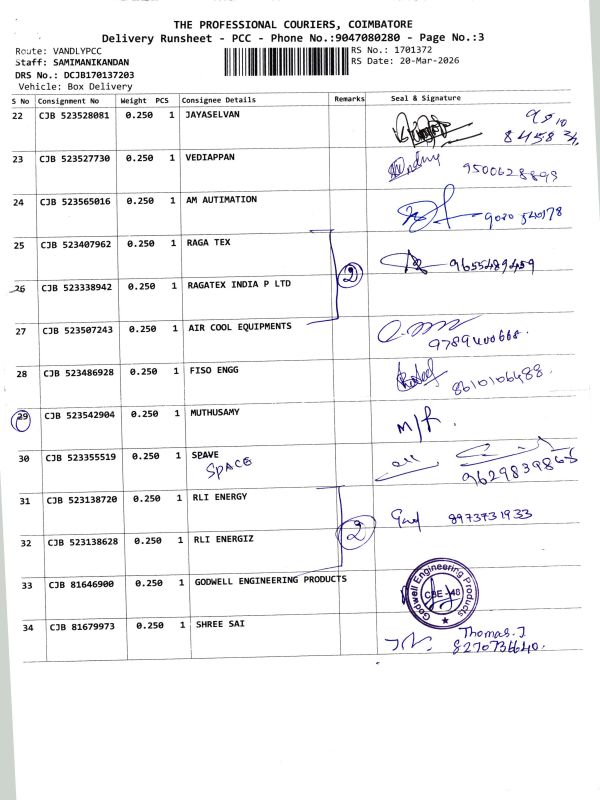 THE PROFESSIONAL COURIERS, COIMBATORE
Delivery Runsheet - PCC - Phone No.:9047080280 - Page No.:3
Route: VANDLYPCC RS No.: 1701372
Staff: SAMIMANIKANDAN RS Date: 20-Mar-2026
DRS No.: DCJB170137203
Vehicle: Box Delivery
S No Consignment No Weight PCS Consignee Details Remarks Seal & Signature
22 CJB 523528081 0.250 1 JAYASELVAN
23 CJB 523527730 0.250 1 VEDIAPPAN 9500628899
24 CJB 523565016 0.250 1 AM AUTIMATION
25 CJB 523407962 0.250 1 RAGA TEX 2 9655489459
26 CJB 523338942 0.250 1 RAGATEX INDIA P LTD
27 CJB 523507243 0.250 1 AIR COOL EQUIPMENTS 9789400668.
28 CJB 523486928 0.250 1 FISO ENGG 8610106488.
29 CJB 523542904 0.250 1 MUTHUSAMY M/R.
30 CJB 523355519 0.250 1 SPAVE
SPACE 9629839865
31 CJB 523138720 0.250 1 RLI ENERGY 8973731933
32 CJB 523138628 0.250 1 RLI ENERGIZ 2
33 CJB 81646900 0.250 1 GODWELL ENGINEERING PRODUCTS Godwell Engineering Products CBE - 48
34 CJB 81679973 0.250 1 SHREE SAI Thomas.J
8270736640.